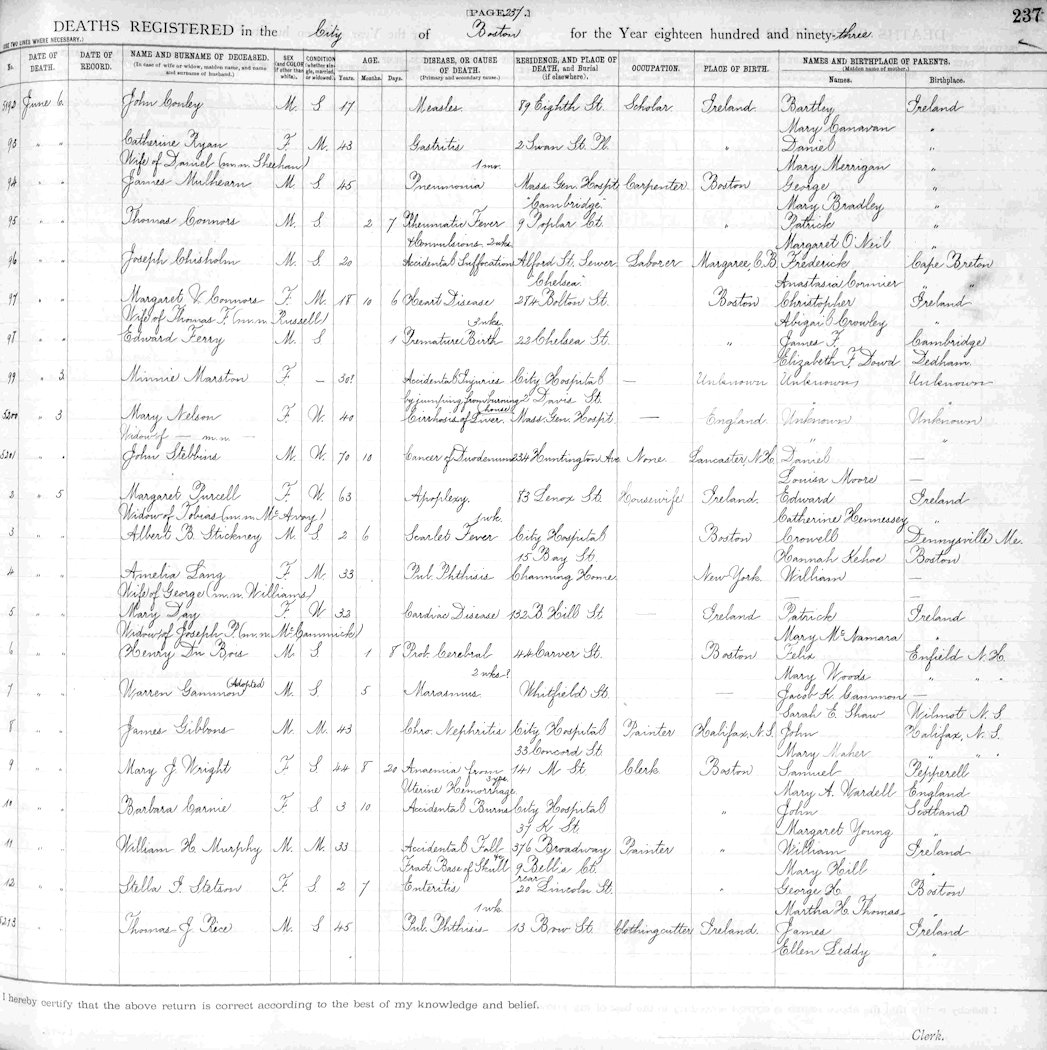 [PAGE 257.]
237
DEATHS REGISTERED in the City of Boston for the Year eighteen hundred and ninety-three.
USE TWO LINES WHERE NECESSARY.)
No. DATE OF DEATH. DATE OF RECORD. NAME AND SURNAME OF DECEASED. (In case of wife or widow, maiden name, and name and surname of husband.) SEX (and COLOR if other than white). CONDITION (whether single, married, or widowed.) AGE. Years. Months. Days. DISEASE, OR CAUSE OF DEATH. (Primary and secondary cause.) RESIDENCE, AND PLACE OF DEATH, and Burial (if elsewhere). OCCUPATION. PLACE OF BIRTH. NAMES AND BIRTHPLACE OF PARENTS. (Maiden name of mother.) Names. Birthplace.
5192 June 6 John Conley M. S 17 Measles 89 Eighth St. Scholar Ireland Bartley Ireland
Mary Canavan "
93 " " Catherine Ryan F. M. 43 Gastritis 2 Swan St. Pl. " Daniel "
Wife of Daniel (m.n. Sheehan) 1 mo. Mary Merrigan "
94 " " James Mulhearn M. S. 45 Pneumonia Mass. Gen. Hospit. Carpenter Boston George "
"Cambridge" Mary Bradley "
95 " " Thomas Connors M. S. 2 7 Rheumatic Fever 9 Poplar Ct. " Patrick "
& Convulsions 2 wks. Margaret O'Neil "
96 " " Joseph Chisholm M. S. 20 Accidental Suffocation Alford St. Sewer Laborer Margaree, C.B. Frederick Cape Breton
"Chelsea" Anastasia Cormier " "
97 " " Margaret V. Connors F. M. 18 10 6 Heart Disease 284 Bolton St. Boston Christopher Ireland
Wife of Thomas F. (m.n. Russell) 3 wks. Abigail Crowley "
98 " " Edward Ferry M. S 1 Premature Birth 22 Chelsea St. " James F. Cambridge
Elizabeth F. Dowd Dedham
99 " 3 Minnie Marston F. — 30? Accidental Injuries City Hospital — Unknown Unknown Unknown
by jumping from burning house 2 Davis St. " "
5200 " 3 Mary Nelson F. W. 40 Cirrhosis of Liver. Mass. Gen. Hospit. — England Unknown Unknown
Widow of — m.n. — " "
5201 John Stebbins M. W. 70 10 Cancer of Duodenum 234 Huntington Ave None. Lancaster, N.H. Daniel —
Louisa Moore —
2 " 5 Margaret Purcell F. W. 63 Apoplexy. 83 Lenox St. Housewife Ireland. Edward Ireland
Widow of Tobias (m.n. Mc Avoy) 1 wk. Catherine Hennessey "
3 " " Albert B. Stickney M. S 2 6 Scarlet Fever City Hospital Boston Crowell Dennysville Me.
15 Bay St. Hannah Kehoe Boston
4 " " Amelia Lang F. M. 33 Pul. Phthisis Channing Home New York William —
Wife of George (m.n. Williams)
5 " " Mary Day F. W 32 Cardiac Disease 132 B. Hill St — Ireland Patrick Ireland
Widow of Joseph P. (m.n. Mc Cammick) Mary Mc Namara "
6 " " Henry Du Bois M. S 1 8 Prob. Cerebral 44 Carver St. Boston Felix Enfield N.H.
2 wks? Mary Woods " " "
7 " " Warren Gammon Adopted M. S 5 Marasmus Whitfield St. — Jacob K. Cammon —
Sarah E. Shaw Wilmot N.S.
8 " " James Gibbons M. M. 43 Chro. Nephritis City Hospital Painter Halifax, N.S. John Halifax, N.S.
33 Concord St. Mary Maher " "
9 " " Mary J. Wright F. S. 44 8 20 Anaemia from 141 M St Clerk Boston Samuel Pepperell
Uterine Hemorrhage 3 yrs. Mary A. Wardell England
10 " " Barbara Carnie F. S 3 10 Accidental Burns City Hospital " John Scotland
37 K St. Margaret Young "
11 " " William H. Murphy M. M. 33 Accidental Fall 376 Broadway Painter " William Ireland
Fract. Base of Skull &c 9 Bell's Ct. Mary Hill "
12 " " Stella F. Stetson F. S 2 7 Enteritis rear 20 Lincoln St. " George H. Boston
1 wk. Martha H. Thomas "
5213 Thomas J. Rice M. S 45 Pul. Phthisis 13 Bow St Clothing cutter Ireland. James Ireland
Ellen Leddy "
I hereby certify that the above return is correct according to the best of my knowledge and belief.
Clerk.